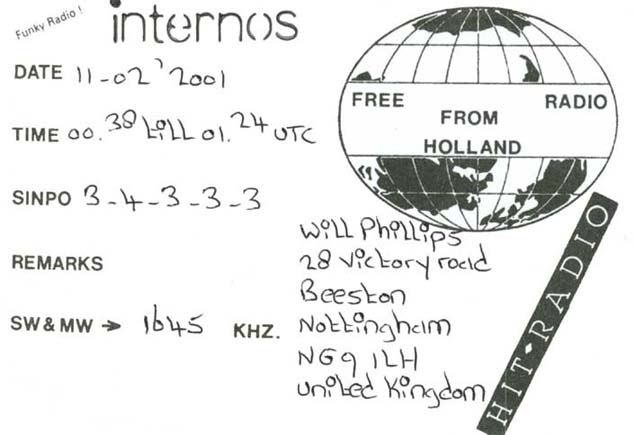 Funky Radio !
internos
DATE 11-02'2001
TIME 00.38 till 01.24 UTC
SINPO 3-4-3-3-3
REMARKS
SW & MW → 1645 KHZ.
FREE RADIO
FROM
HOLLAND
Will Phillips
28 Victory road
Beeston
Nottingham
NG9 1LH
United Kingdom
HIT·RADIO